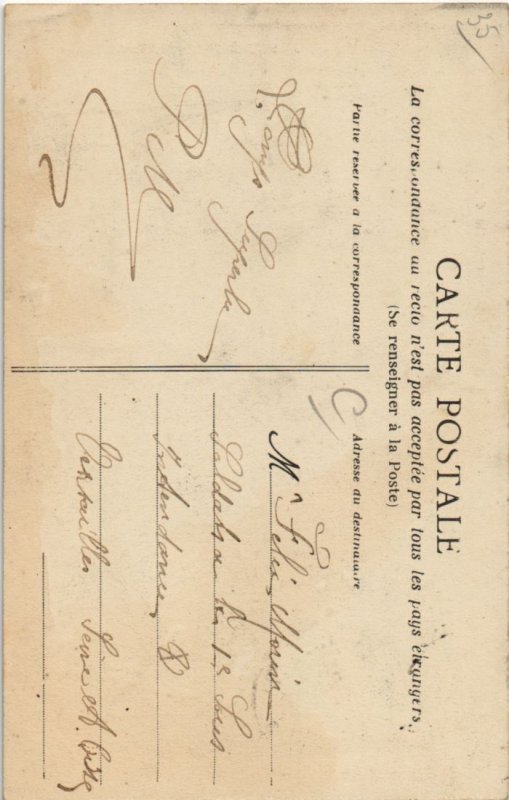 35
CARTE POSTALE
La correspondance au recto n'est pas acceptée par tous les pays étrangers.
(Se renseigner à la Poste)
Partie réservée à la correspondance
Adresse du destinataire
C
Temps Superbe
PM
Mr Félix Morin
Soldat
Intendance
Versailles Seine et Oise